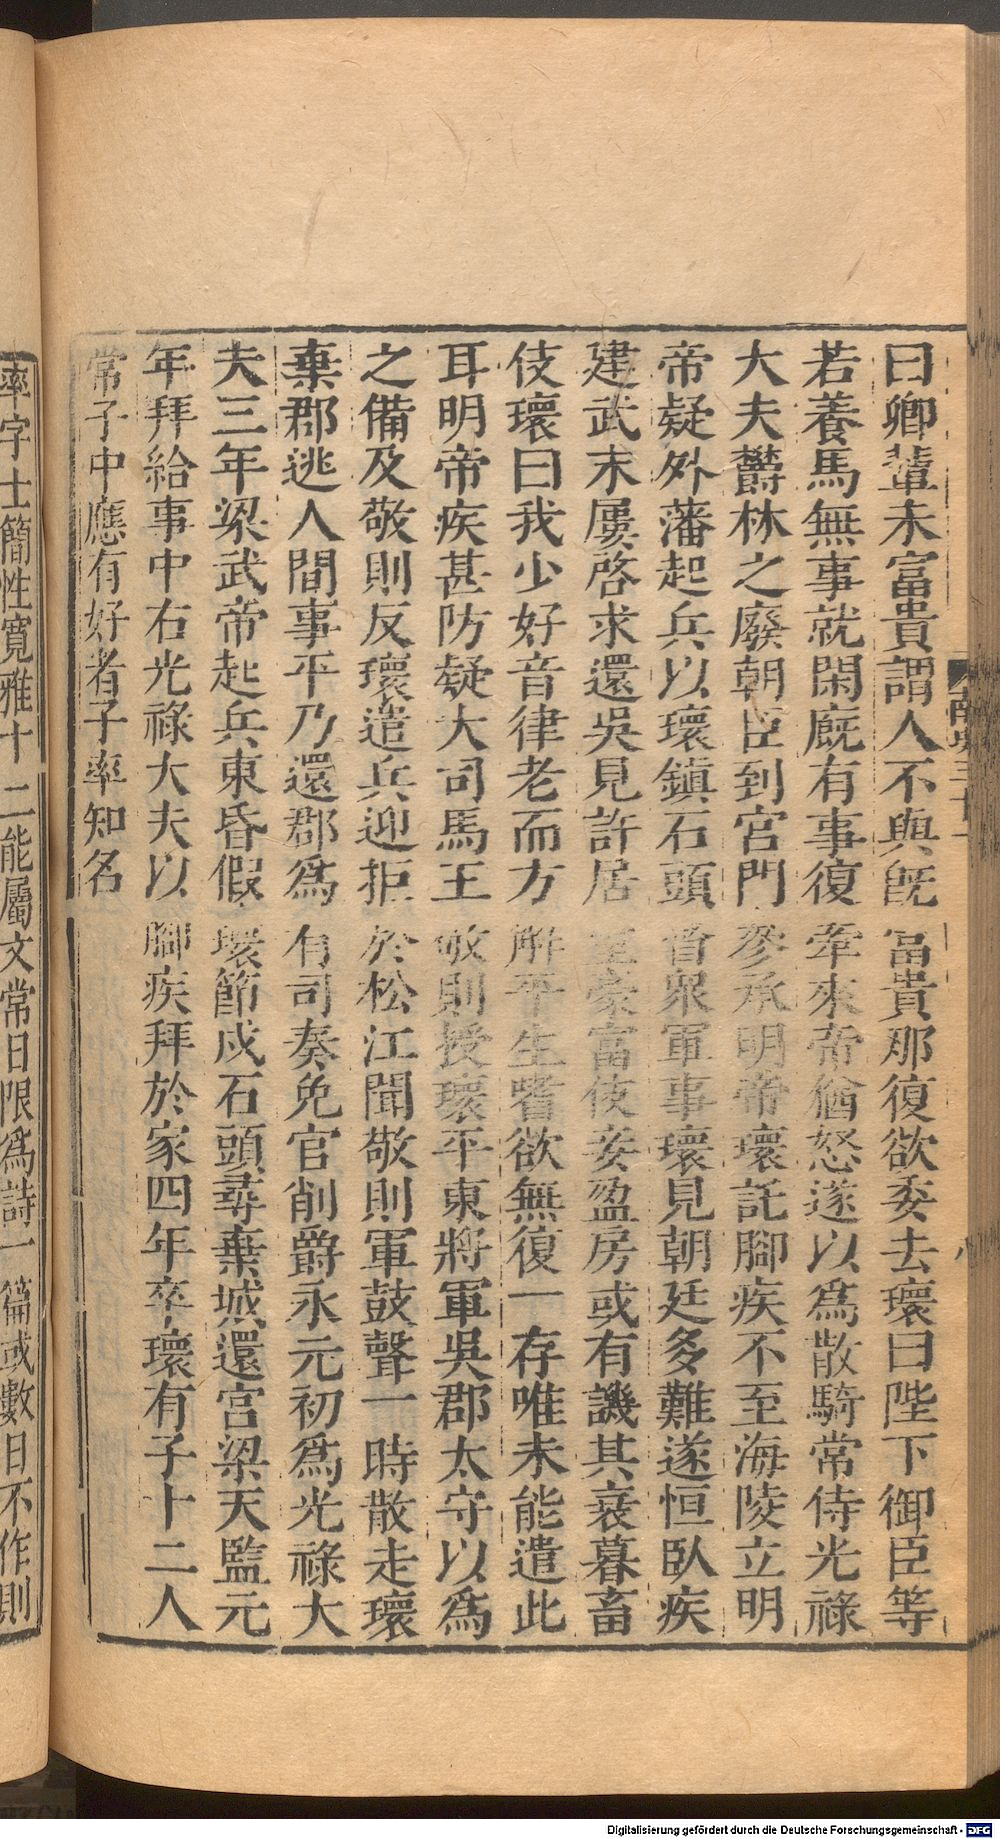 曰卿輩未富貴謂人不與旣富貴那復欲委去瓌曰陛下御臣等
若養馬無事就閑廐有事復牽來帝猶怒遂以爲散騎常侍光祿
大夫欝林之廢朝臣到宮門參承明帝瓌託腳疾不至海陵立明
帝疑外藩起兵以瓌鎮石頭督衆軍事瓌見朝廷多難遂恒臥疾
建武末屢啓求還吳見許居室豪富伎妾盈房或有譏其衰暮畜
伎瓌曰我少好音律老而方解平生嗜欲無復一存唯未能遣此
耳明帝疾甚防疑大司馬王敬則授瓌平東將軍吳郡太守以爲
之備及敬則反瓌遣兵迎拒於松江聞敬則軍鼓聲一時散走瓌
棄郡逃人間事平乃還郡爲有司奏免官削爵永元初爲光祿大
夫三年梁武帝起兵東昏假瓌節戍石頭尋棄城還宮梁天監元
年拜給事中右光祿大夫以腳疾拜於家四年卒瓌有子十二人
常子中應有好者子率知名
率字士簡性寬雅十二能屬文常日限爲詩一篇或數日不作則
南史三十一
Digitalisierung gefördert durch die Deutsche Forschungsgemeinschaft - DFG